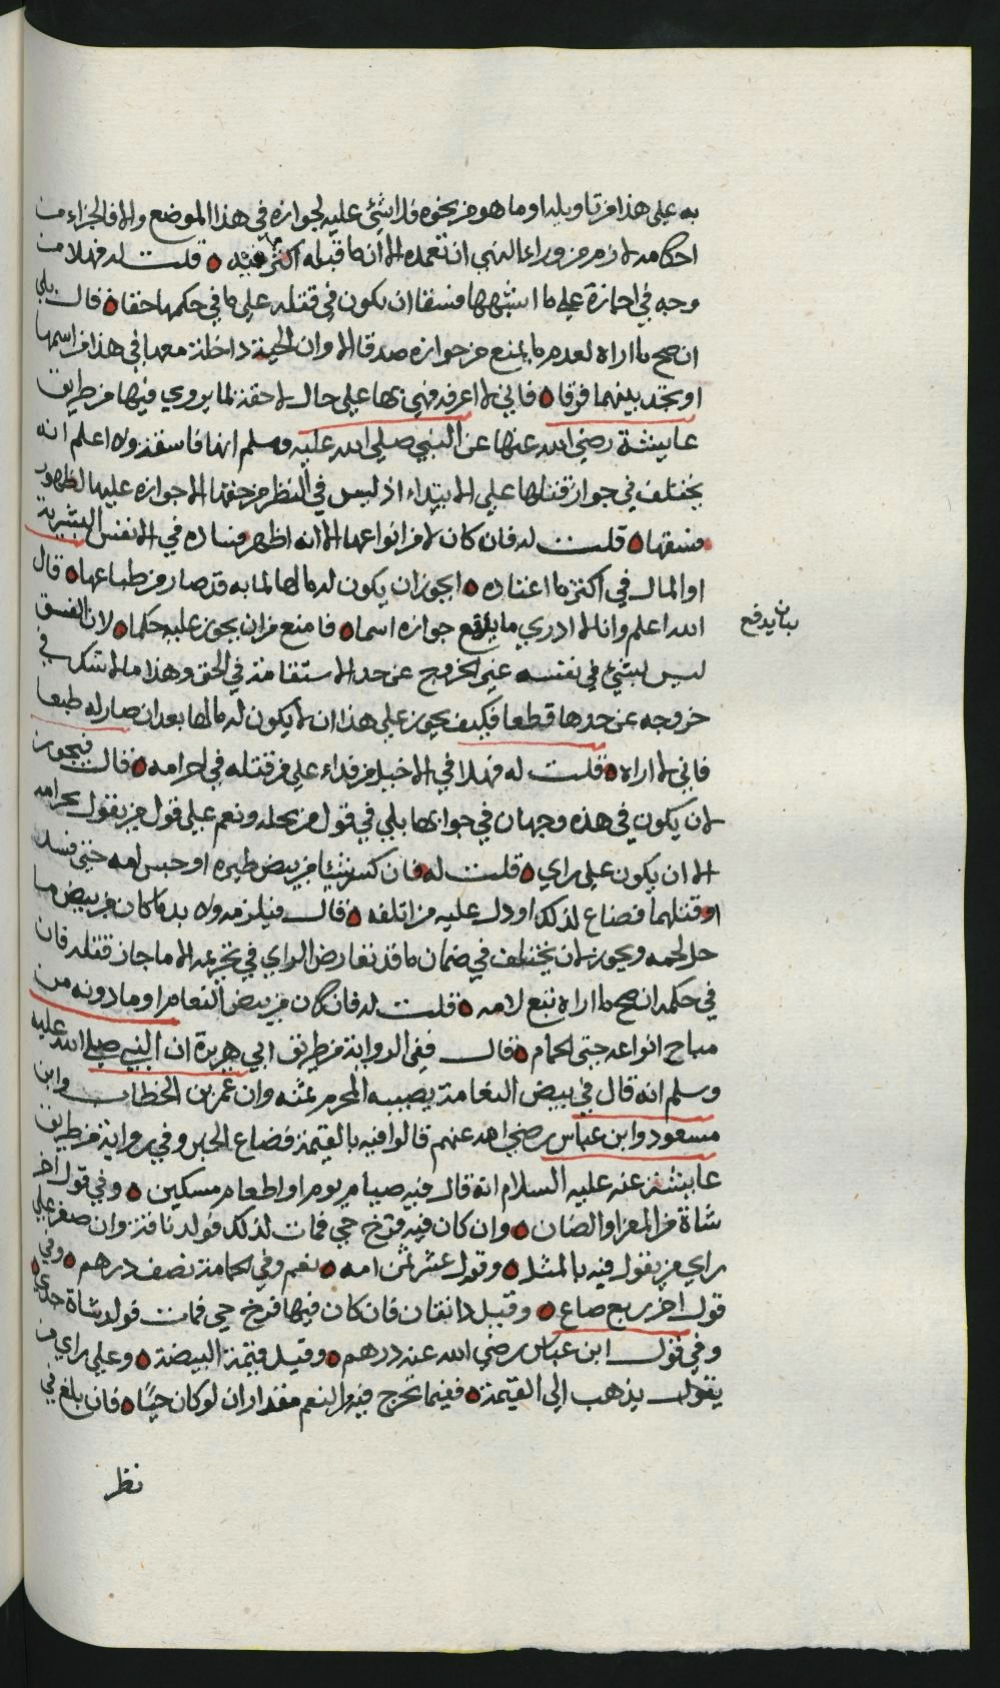 به على هذا من تاويله او ما هو من نحوه فلا شيء عليه لجوازه في هذا الموضع والا فالجزاء من
احكامه لازم من وراء النهي ان تعمده الا ان ما قبله اكثر قلت له فهلا من
وجه في اجازة على ما اشبهها فسقا ان يكون في قتله على ما في حكمها حقا قال بلى
ان صح ما اراه لعدم ما يمنع من جوازه صدقا الا وان الحية داخلة معها في هذا من اسمها
او تجد بينهما فرقا فاني لا اعرفه فهي بها على حال لاحقة لما يروى فيها من طريق
عايشة رضي الله عنها عن النبي صلى الله عليه وسلم انها فاسقة ولا اعلم انه
يختلف في جواز قتلها على الابتداء اذ ليس في النظر من حقها الا جوازه عليها لظهور
فسقها قلت له فان كان لا من انواعها الا انه اظهر فساده في الانفس البشرية
او المال في اكثر ما اعتاده ايجوز ان يكون له ما لها لما به قد صار من طباعها قال
الله اعلم وانا لا ادري ما يدفع جوازه اسما فامنع من ان يجوز عليه حكما لان الفسق
بيان يدفع
ليس لشيء في نفسه غير الخروج عن حد الاستقامة في الحق وهذا ما لا شك في
خروجه عن حدها قطعا فكيف يجوز على هذا ان لا يكون له ما لها بعد ان صار له طبعا
فاني لا اراه قلت له فهلا في الاخيل من فداء على من قتله في احرامه قال فيجوز
لان يكون في هذه وجهان في جوابها بلى في قول من يحله ونعم على قول من يقول بحرامه
الا ان يكون على راي قلت له فان كسر شيئا من بيض طيره او حبس امه حتى فسد
او قتلهما فضاع لذلك او دل عليه من اتلفه قال فيلزمه ولا بد ما كان من بيض ما
حل لحمه ويجوز لان يختلف في ضمان ما قد تعارض الراي في تحريمه الا ما جاز قتله فان
في حكمه ان صح ما اراه تبع لامه قلت له فان كان من بيض النعام او ما دونه من
مباح انواعه حتى الحمام قال ففي الرواية من طريق ابي هريرة ان النبي صلى الله عليه
وسلم انه قال في بيض النعامة يصيبه المحرم ثمنه وان عمر بن الخطاب وابن
مسعود وابن عباس رضي الله عنهم قالوا فيه بالقيمة فضاع الجبن وفي رواية من طريق
عايشة عنه عليه السلام انه قال فيه صيام يوم او اطعام مسكين وفي قول اخر
شاة من المعز او الضان وان كان فيه فرخ حي فمات لذلك فولد ناقة وان صغر على
راي من يقول فيه بالمثل وقول عشر ثمن امه نعم وفي الحمامة نصف درهم وفي
قول اخر ربع صاع وقيل دانقان فان كان فيها فرخ حي فمات فولد شاة جدي
وفي قول ابن عباس رضي الله عنه درهم وقيل قيمة البيضة وعلى راي من
يقول يذهب الى القيمة ففيما تخرج فيه من النعم مقدار ان لو كان حيا فان بلغ في
نظر